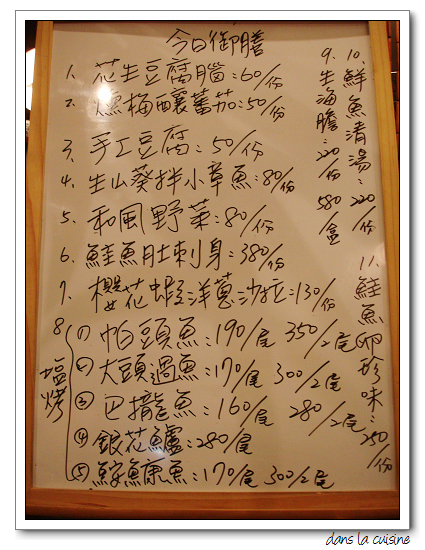 今日御膳
1. 花生豆腐腦:60/份
2. 燻梅釀蕃茄:50/份
3. 手工豆腐:50/份
4. 生山葵拌小章魚:80/份
5. 和風野菜:80/份
6. 鮭魚肚刺身:380/份
7. 櫻花蝦洋蔥沙拉:130/份
8 塩烤
(1) 帕頭魚:190/尾 350/2尾
(2) 大頭過魚:170/尾 300/2尾
(3) 巴攏魚:160/尾 280/2尾
(4) 銀花鱸:280/尾
(5) 魚:170/尾 300/2尾
9. 生海膽:220/份 580/盒
10. 鮮魚清湯:220/份
11. 鮭魚卵珍味:250/份
dans la cuisine